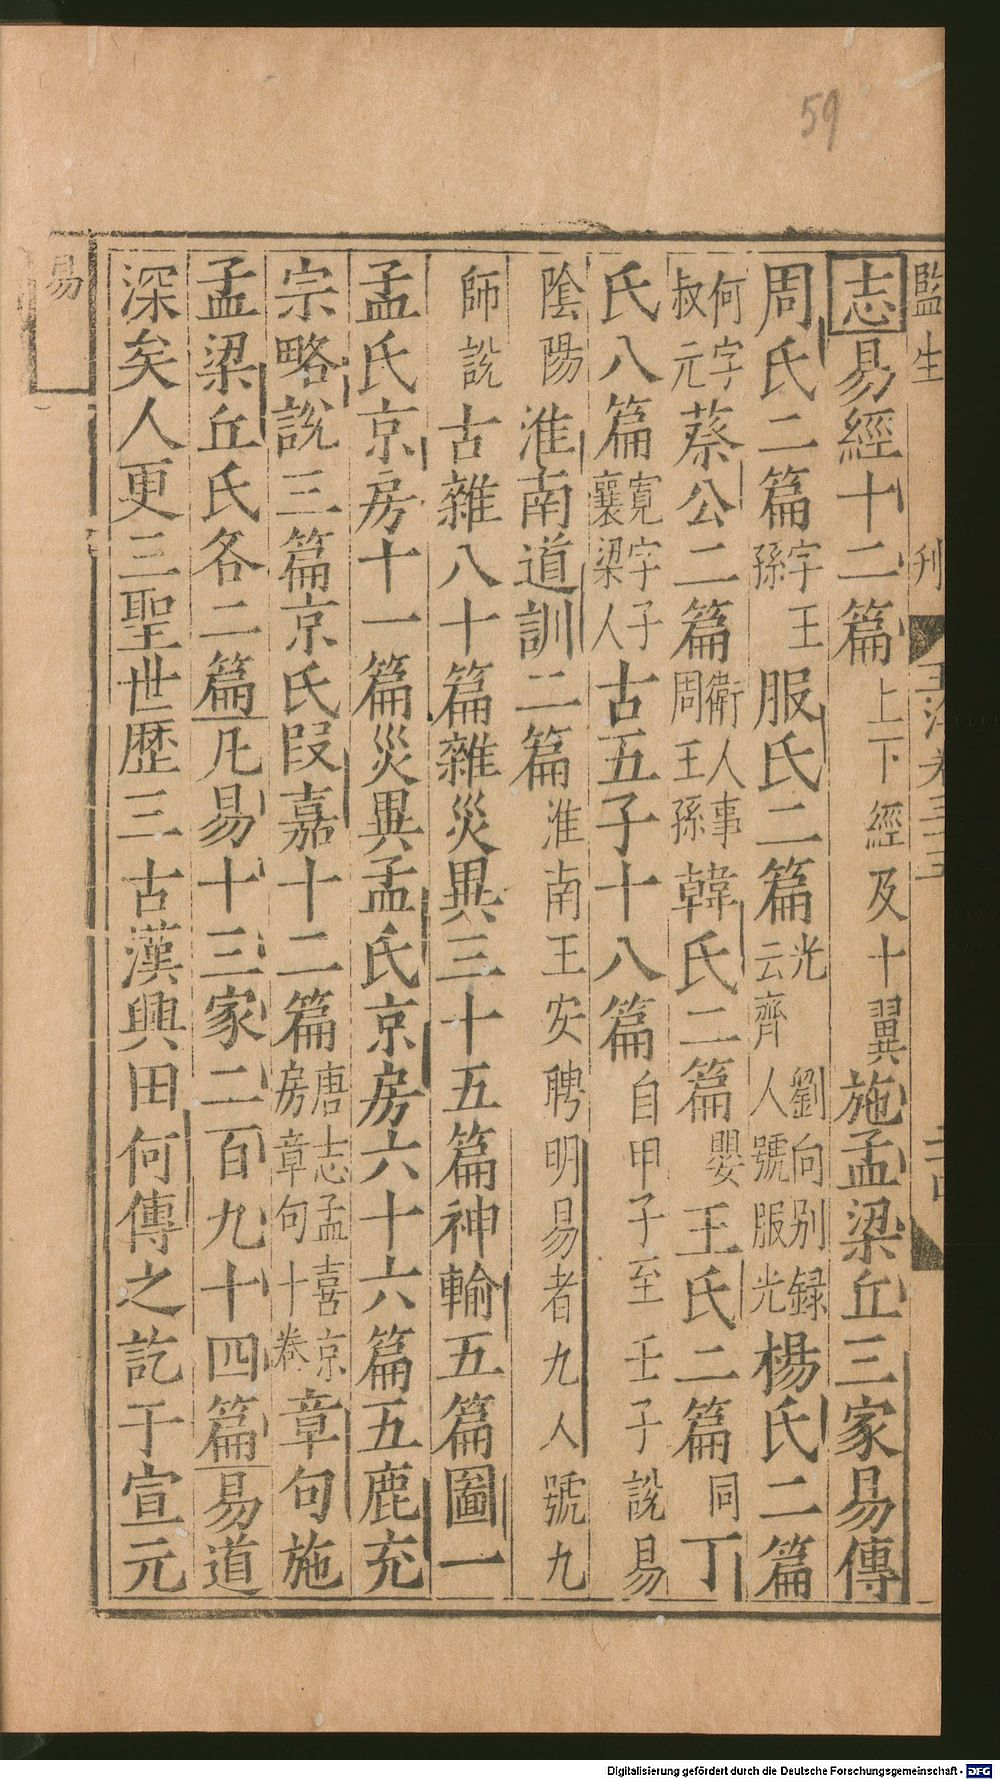 59
監生 刋 玉海卷三十五
志易經十二篇上下經及十翼施孟梁丘三家易傳
周氏二篇字王孫服氏二篇劉向別録云齊人號服光光楊氏二篇
何字叔元蔡公二篇衛人事周王孫韓氏二篇嬰王氏二篇同丁
氏八篇寛字子襄梁人古五子十八篇自甲子至壬子說易
陰陽淮南道訓二篇淮南王安聘明易者九人號九
師說古雜八十篇雜災異三十五篇神輸五篇圖一
孟氏京房十一篇災異孟氏京房六十六篇五鹿充
宗略說三篇京氏叚嘉十二篇唐志孟喜京房章句十卷章句施
孟梁丘氏各二篇凡易十三家二百九十四篇易道
深矣人更三聖世歴三古漢興田何傳之訖于宣元
易
Digitalisierung gefördert durch die Deutsche Forschungsgemeinschaft - DFG